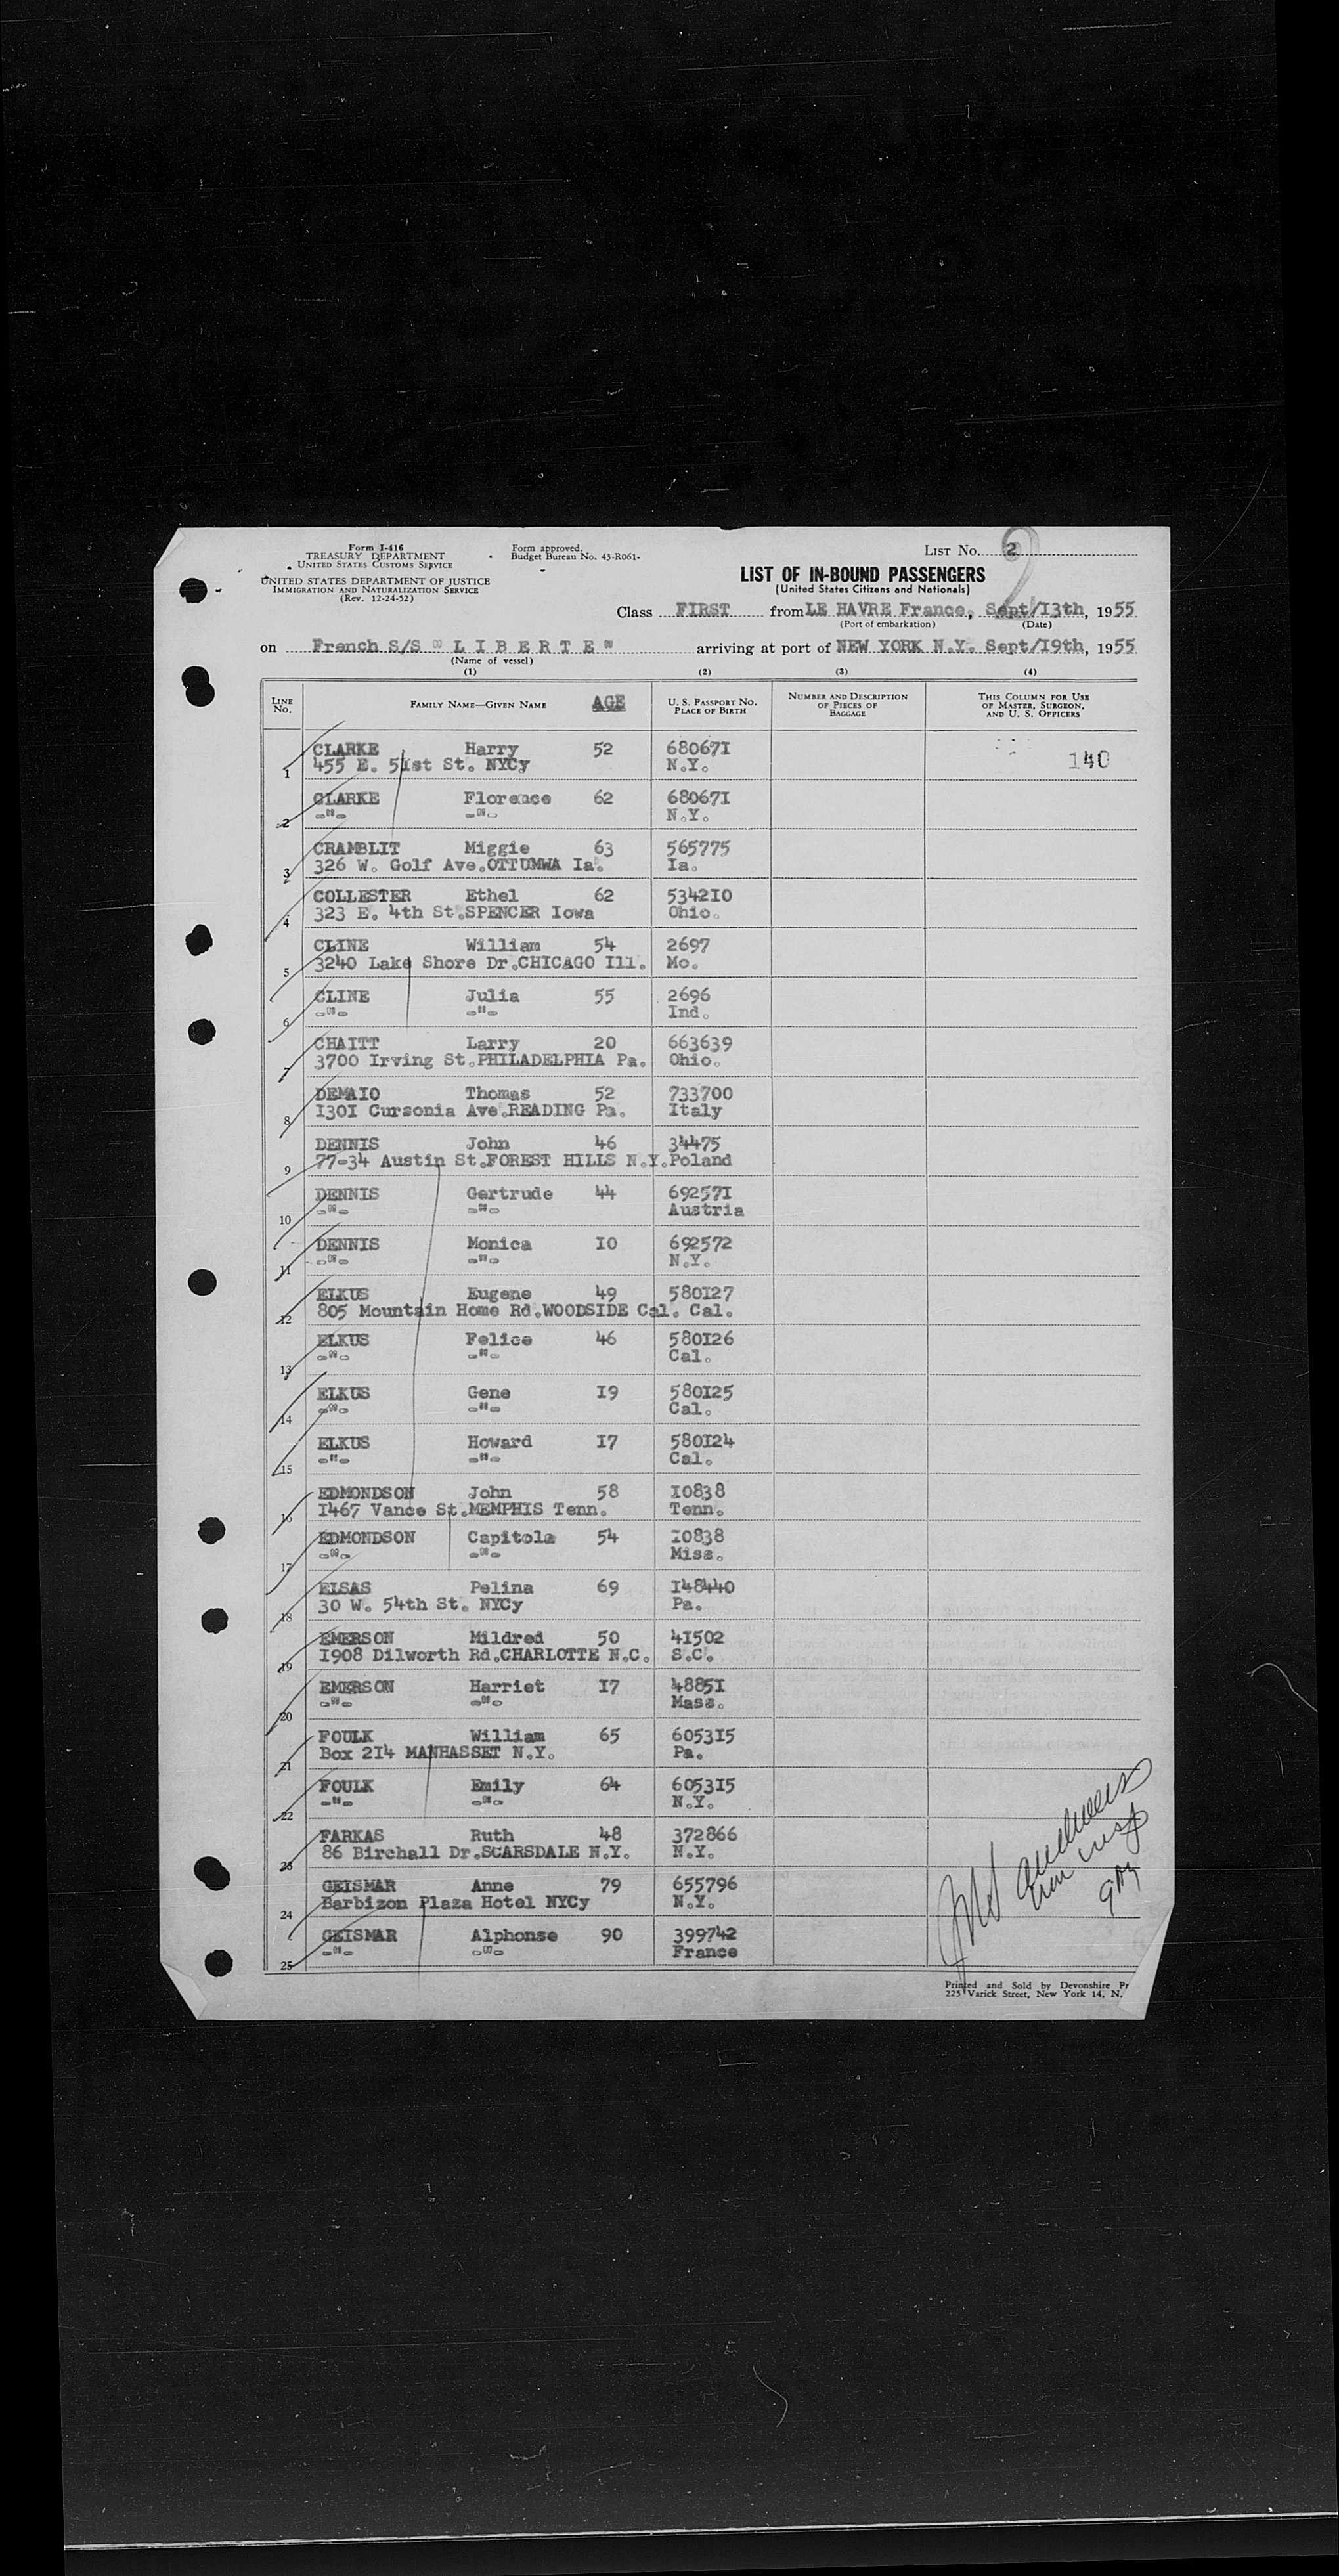 Form I-416
TREASURY DEPARTMENT
UNITED STATES CUSTOMS SERVICE
UNITED STATES DEPARTMENT OF JUSTICE
IMMIGRATION AND NATURALIZATION SERVICE
(Rev. 12-24-52)
Form approved.
Budget Bureau No. 43-R061-
LIST No. 2
2
LIST OF IN-BOUND PASSENGERS
(United States Citizens and Nationals)
Class FIRST from LE HAVRE France, Sept/13th, 1955
(Port of embarkation) (Date)
on French S/S "L I B E R T E" arriving at port of NEW YORK N.Y. Sept/19th, 1955
(Name of vessel)
(1) (2) (3) (4)
LINE No. FAMILY NAME—GIVEN NAME AGE U. S. PASSPORT No. PLACE OF BIRTH NUMBER AND DESCRIPTION OF PIECES OF BAGGAGE THIS COLUMN FOR USE OF MASTER, SURGEON, AND U. S. OFFICERS
CLARKE Harry 52 68067I
1 455 E. 51st St. NYCy N.Y. 140
CLARKE Florence 62 68067I
2 -"- -"- N.Y.
CRAMBLIT Miggie 63 565775
3 326 W. Golf Ave.OTTUMWA Ia. Ia.
COLLESTER Ethel 62 5342I0
4 323 E. 4th St.SPENCER Iowa Ohio.
CLINE William 54 2697
5 3240 Lake Shore Dr.CHICAGO Ill. Mo.
CLINE Julia 55 2696
6 -"- -"- Ind.
CHAITT Larry 20 663639
7 3700 Irving St.PHILADELPHIA Pa. Ohio.
DEMAIO Thomas 52 733700
8 I30I Cursonia Ave.READING Pa. Italy
DENNIS John 46 34475
9 77-34 Austin St.FOREST HILLS N.Y.Poland
DENNIS Gertrude 44 69257I
10 -"- -"- Austria
DENNIS Monica I0 692572
11 -"- -"- N.Y.
ELKUS Eugene 49 580I27
12 805 Mountain Home Rd.WOODSIDE Cal. Cal.
ELKUS Felice 46 580I26
13 -"- -"- Cal.
ELKUS Gene I9 580I25
14 -"- -"- Cal.
ELKUS Howard I7 580I24
15 -"- -"- Cal.
EDMONDSON John 58 I0838
16 I467 Vance St.MEMPHIS Tenn. Tenn.
EDMONDSON Capitola 54 I0838
17 -"- -"- Miss.
ELSAS Pelina 69 I48440
18 30 W. 54th St. NYCy Pa.
EMERSON Mildred 50 4I502
19 I908 Dilworth Rd.CHARLOTTE N.C. S.C.
EMERSON Harriet I7 4885I
20 -"- -"- Mass.
FOULK William 65 6053I5
21 Box 2I4 MANHASSET N.Y. Pa.
FOULK Emily 64 6053I5
22 -"- -"- N.Y.
FARKAS Ruth 48 372866
23 86 Birchall Dr.SCARSDALE N.Y. N.Y.
GEISMAR Anne 79 655796
24 Barbizon Plaza Hotel NYCy N.Y.
GEISMAR Alphonse 90 399742
25 -"- -"- France
Printed and Sold by Devonshire Pr
225 Varick Street, New York 14, N.